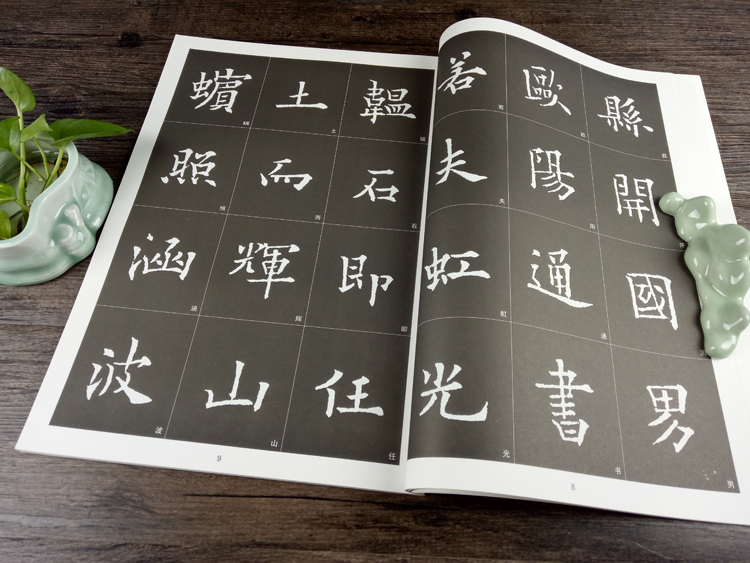 縣開國男
歐陽通書
若夫虹光
8
韞石即任
土而輝山
蠙照涵波
9